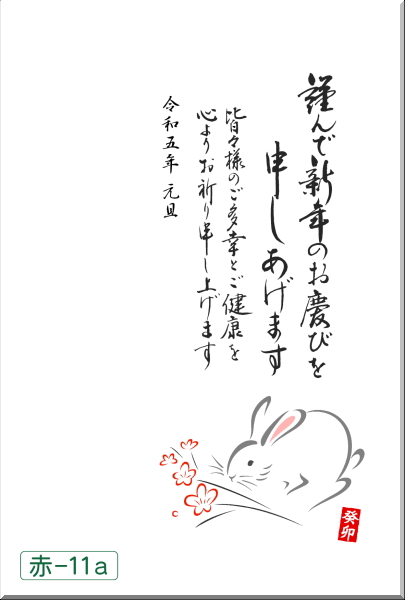 謹んで新年のお慶びを
申しあげます
皆々様のご多幸とご健康を
心よりお祈り申し上げます
令和五年 元旦
癸卯
赤-11a